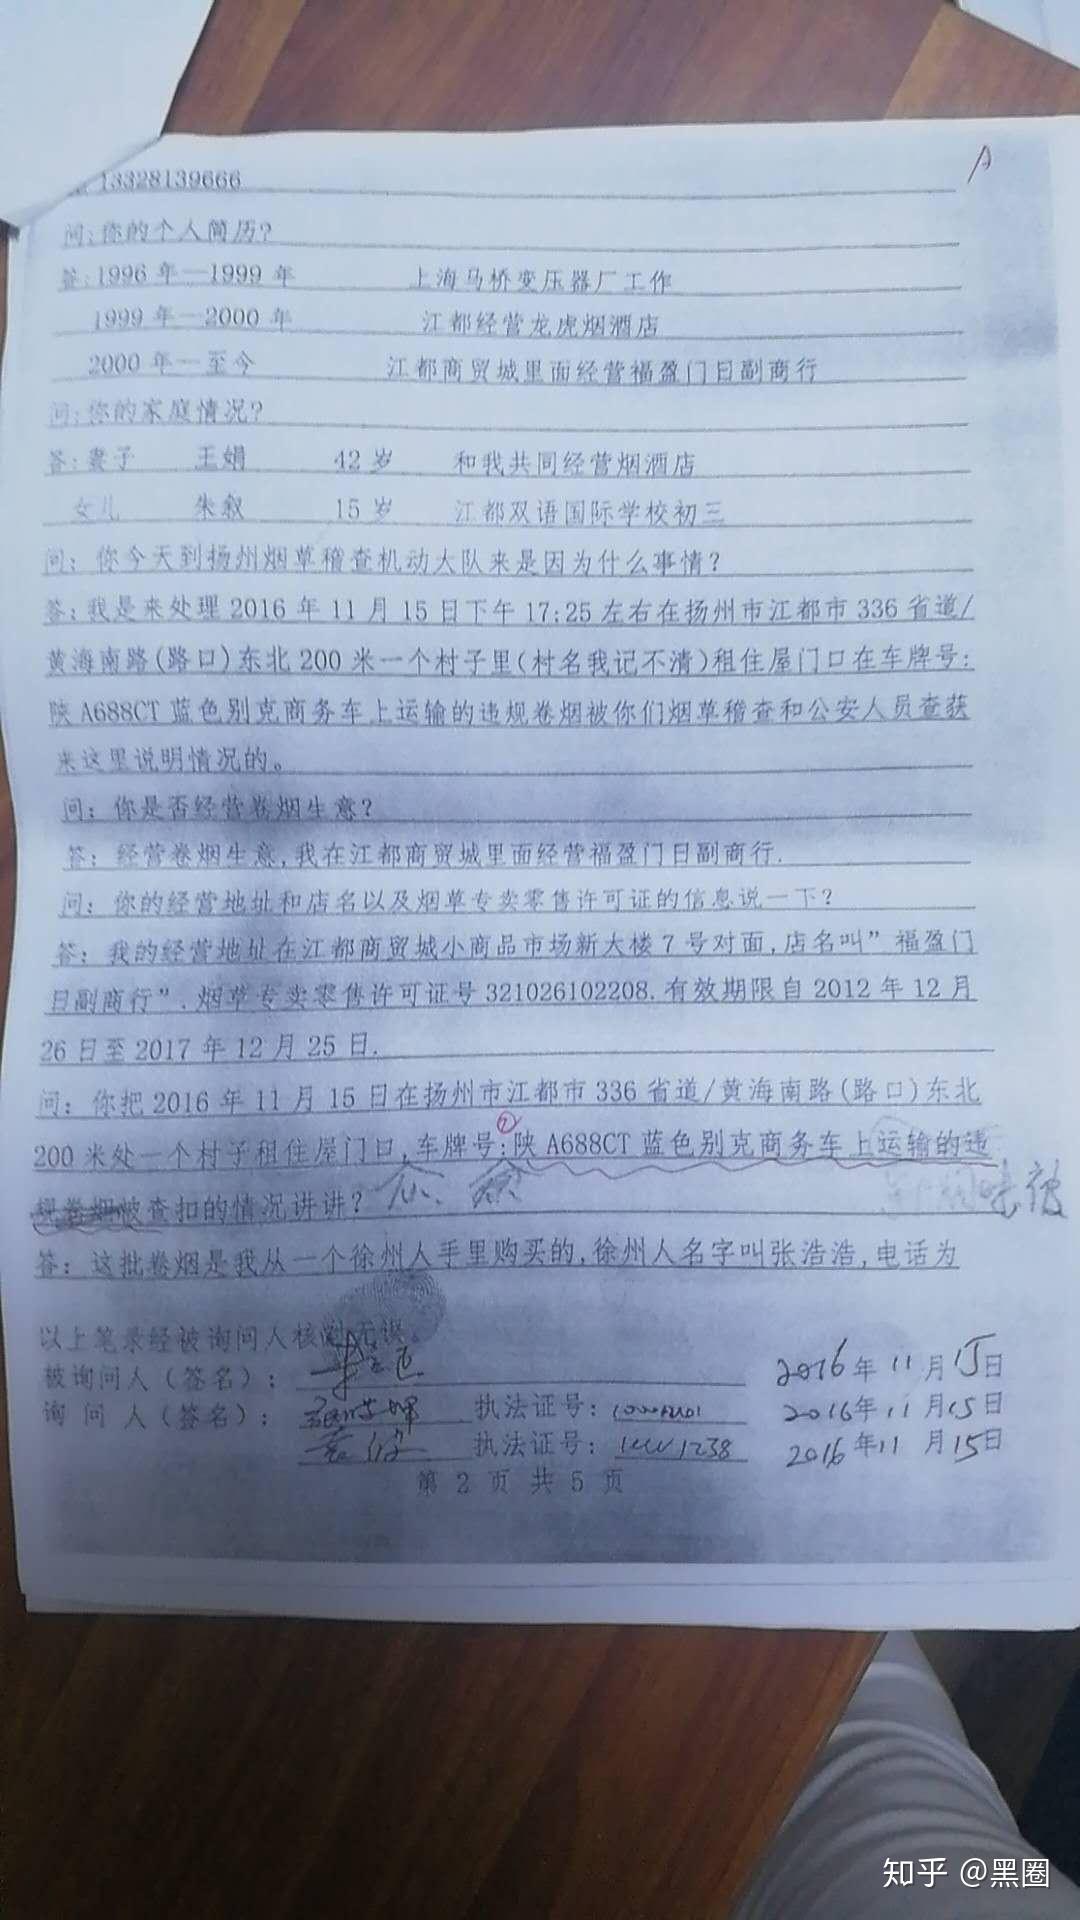 A
13328139666
问:你的个人简历?
答:1996年—1999年 上海马桥变压器厂工作
1999年—2000年 江都经营龙虎烟酒店
2000年—至今 江都商贸城里面经营福盈门日副商行
问:你的家庭情况?
答:妻子 王娟 42岁 和我共同经营烟酒店
女儿 朱叙 15岁 江都双语国际学校初三
问:你今天到扬州烟草稽查机动大队来是因为什么事情?
答:我是来处理2016年11月15日下午17:25左右在扬州市江都市336省道/
黄海南路(路口)东北200米一个村子里(村名我记不清)租住屋门口在车牌号:
陕A688CT蓝色别克商务车上运输的违规卷烟被你们烟草稽查和公安人员查获
来这里说明情况的。
问:你是否经营卷烟生意?
答:经营卷烟生意,我在江都商贸城里面经营福盈门日副商行.
问:你的经营地址和店名以及烟草专卖零售许可证的信息说一下?
答:我的经营地址在江都商贸城小商品市场新大楼7号对面,店名叫"福盈门
日副商行".烟草专卖零售许可证号321026102208.有效期限自2012年12月
26日至2017年12月25日.
问:你把2016年11月15日在扬州市江都市336省道/黄海南路(路口)东北
200米处一个村子租住屋门口,车牌号:陕A688CT蓝色别克商务车上运输的违
规卷烟被查扣的情况讲讲?
答:这批卷烟是我从一个徐州人手里购买的,徐州人名字叫张浩浩,电话为
以上笔录经被询问人核对无误。
被询问人(签名): 2016年11月15日
询问人(签名): 执法证号: 2016年11月15日
执法证号: 2016年11月15日
第2页共5页
知乎 @黑圈